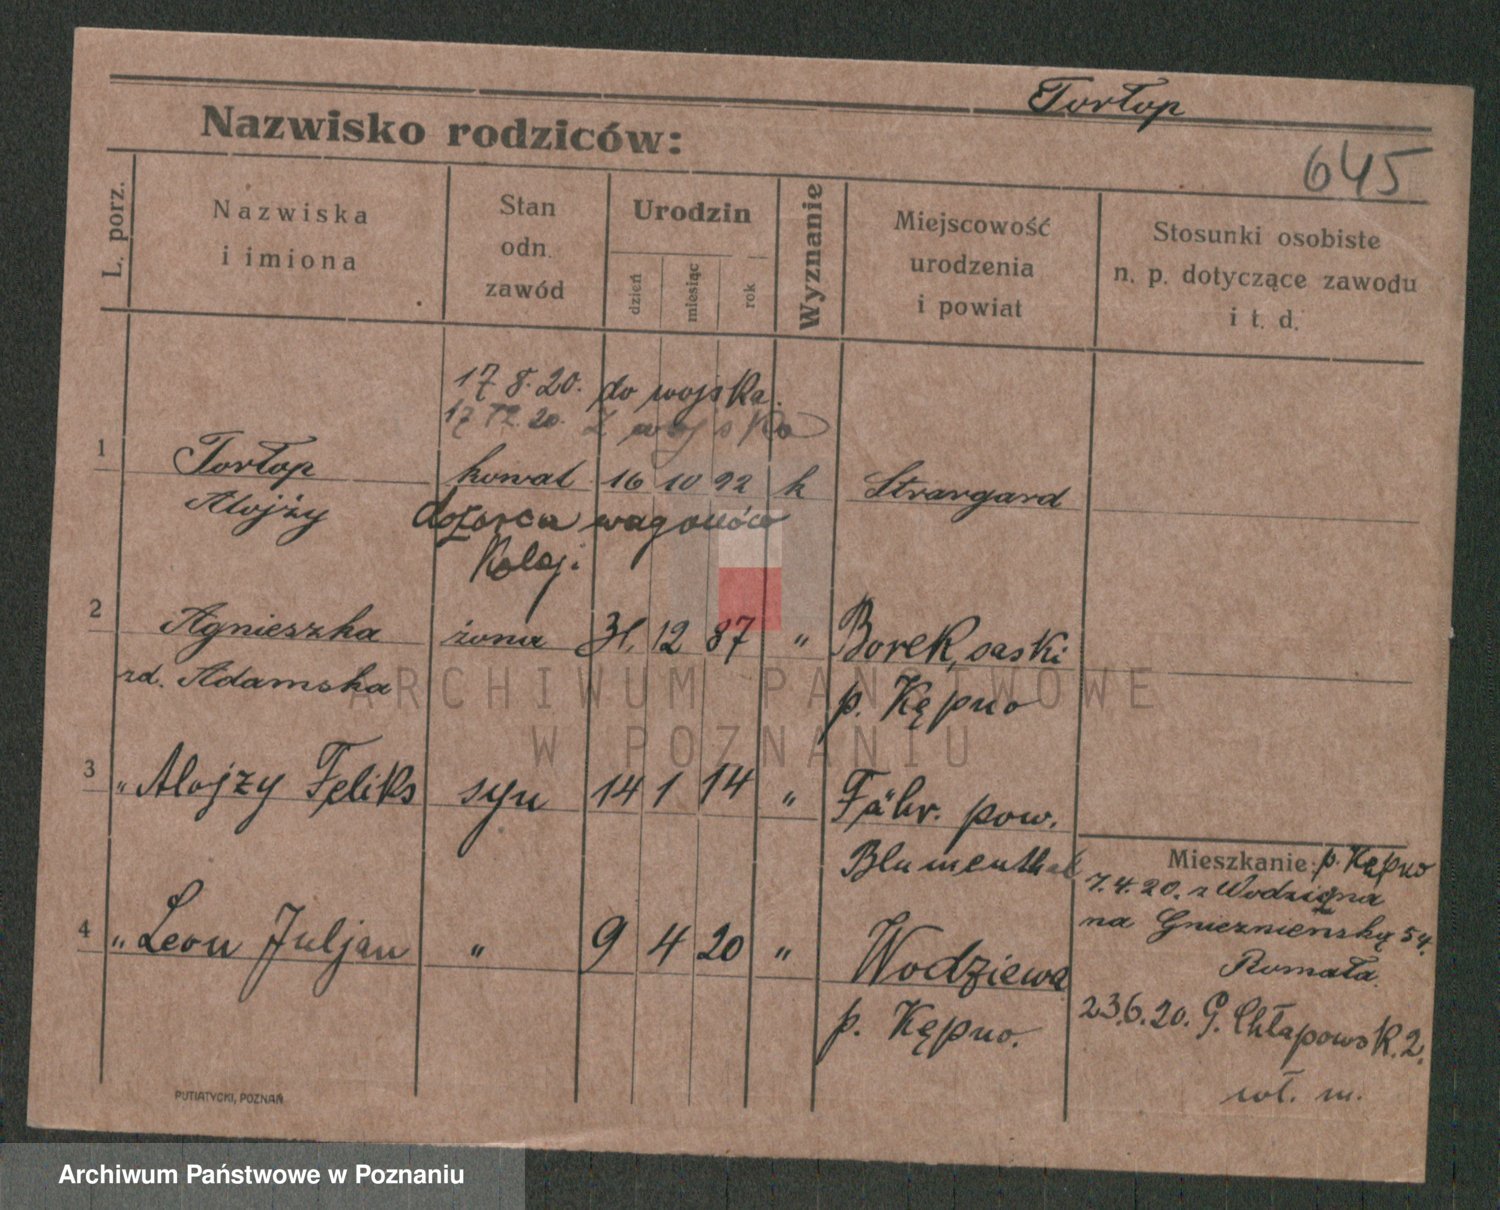 Torłop
Nazwisko rodziców:
645
L. porz.
Nazwiska
i imiona
Stan
odn.
zawód
Urodzin
dzień
miesiąc
rok
Wyznanie
Miejscowość
urodzenia
i powiat
Stosunki osobiste
n. p. dotyczące zawodu
i t. d.
17 8. 20. do wojska.
17 12. 20. z wojska
1 Torłop kowal 16 10 92 k Strargard
Alojzy dozorca wagonów
Kolej.
2 Agnieszka żona 31. 12 87 " Borek, saski
rd. Adamska p. Kępno
3 " Alojzy Feliks syn 14 1 14 " Fähr. pow.
Blumenthal
4 " Leon Juljan " 9 4 20 " Wodziewa
p. Kępno.
Mieszkanie: p. Kępno
7.4.20. z Wodzigna
na Gnieznienską 54.
Romała.
23.6.20. G. Chłapowsk. 2.
wł. m.
PUTIATYCKI, POZNAŃ
ARCHIWUM PAŃSTWOWE
W POZNANIU
Archiwum Państwowe w Poznaniu